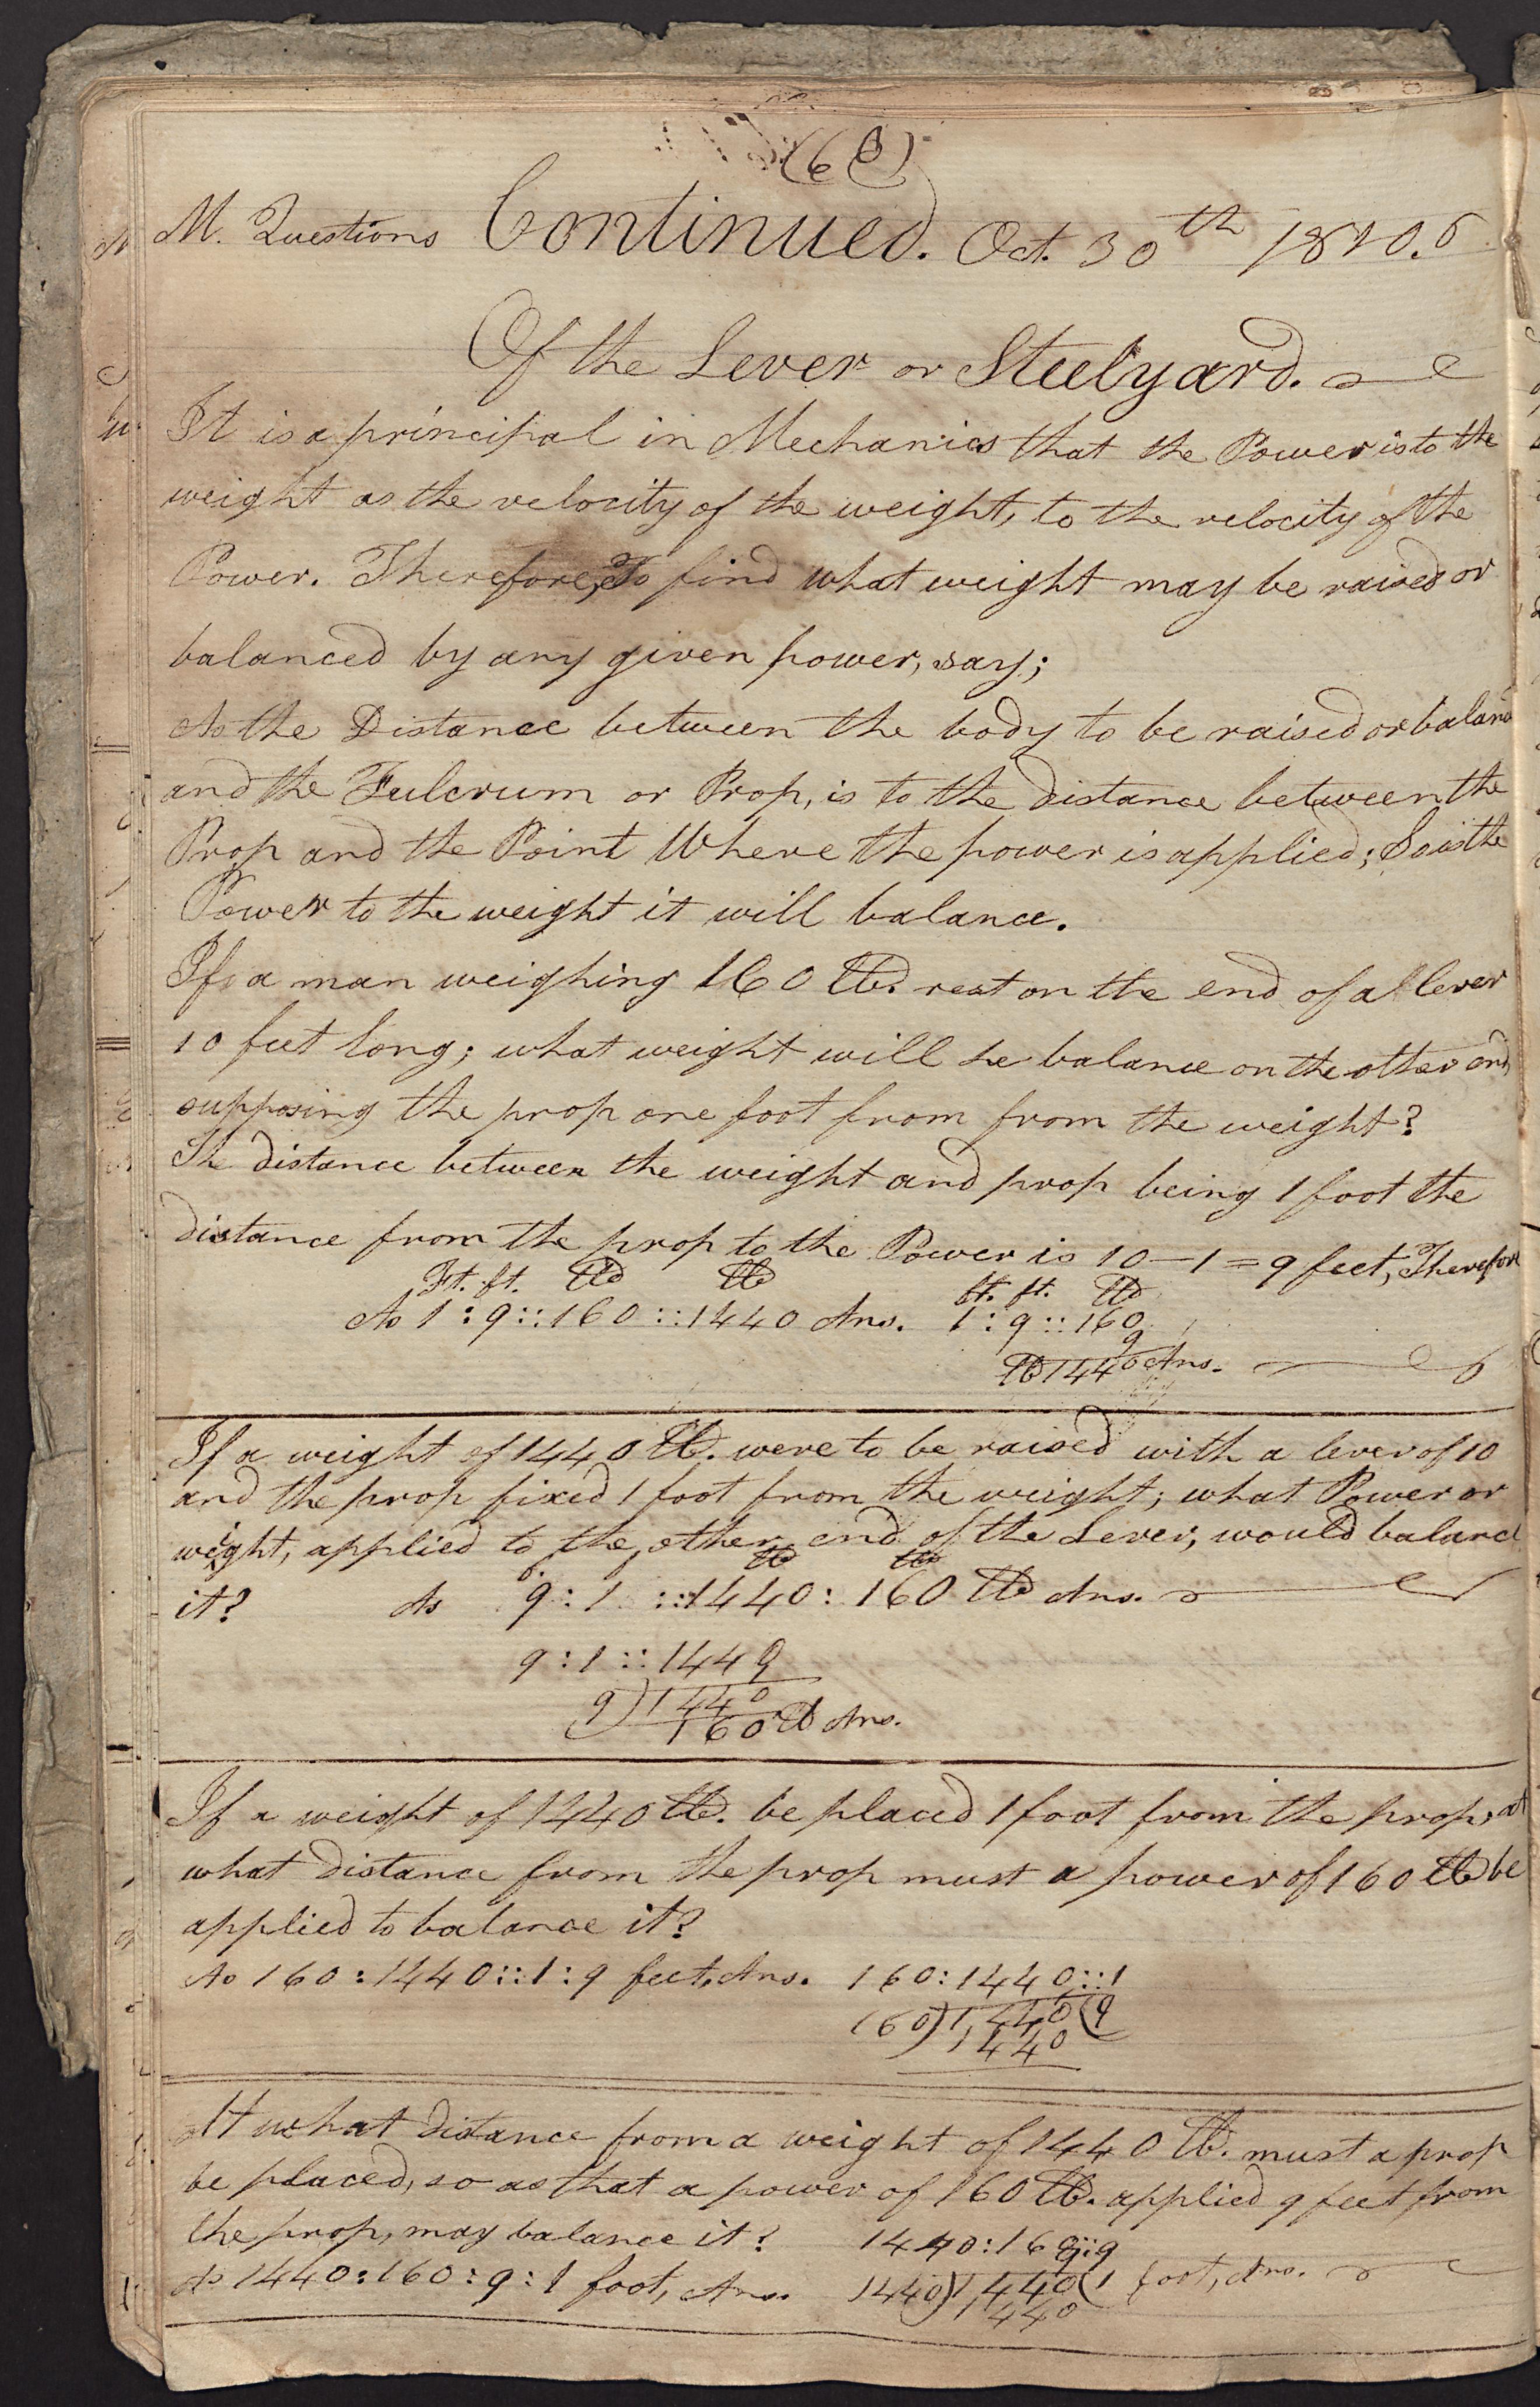 (68)
M. Questions Continued. Oct. 30th 1820.
Of the Lever or Steelyard.
It is a principal in Mechanics that the Power is to the
weight as the velocity of the weight, to the velocity of the
Power. Therefore, To find what weight may be raised or
balanced by any given power, say;
As the Distance between the body to be raised or balanc
and the Fulcrum or Prop, is to the distance between the
Prop and the Point Where the power is applied; So is the
Power to the weight it will balance.
If a man weighing 160 lb. rest on the end of a lever
10 feet long; what weight will he balance on the other end,
supposing the prop one foot from from the weight?
The distance between the weight and prop being 1 foot the
distance from the prop to the Power is 10—1=9 feet, Therefore
Ft. ft. lb lb ft. ft. lb
As 1:9::160::1440 Ans. 1:9::160
9
lb 1440 Ans.
If a weight of 1440 lb. were to be raised with a lever of 10
and the prop fixed 1 foot from the weight; what Power or
weight, applied to the other end of the Lever, would balance
lb lb
it? As 9:1::1440:160 lb Ans.
9:1::1440
9)1440
160 lb Ans.
If a weight of 1440 lb. be placed 1 foot from the prop, at
what distance from the prop must a power of 160 lb be
applied to balance it?
As 160:1440::1:9 feet, Ans. 160:1440::1
160)1440(9
1440
At what distance from a weight of 1440 lb. must a prop
be placed, so as that a power of 160 lb. applied 9 feet from
the prop, may balance it? 1440:160::9
9
As 1440:160:9:1 foot, Ans. 1440)1440(1 foot, Ans.
1440